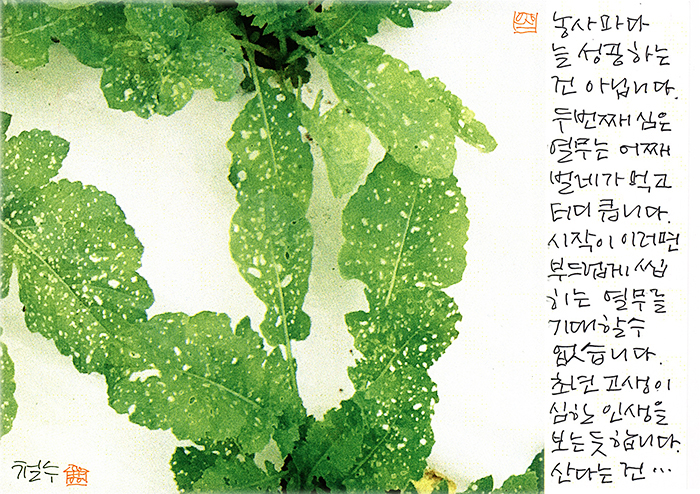 농사마다
늘 성공하는
건 아닙니다.
두번째 심은
열무는 어째
벌레가 먹고
터디 큽니다.
시작이 이러면
부드럽게 씹
히는 열무를
기대할수
없습니다.
초년 고생이
심한 인생을
보는듯합니다.
산다는 건 …
철수